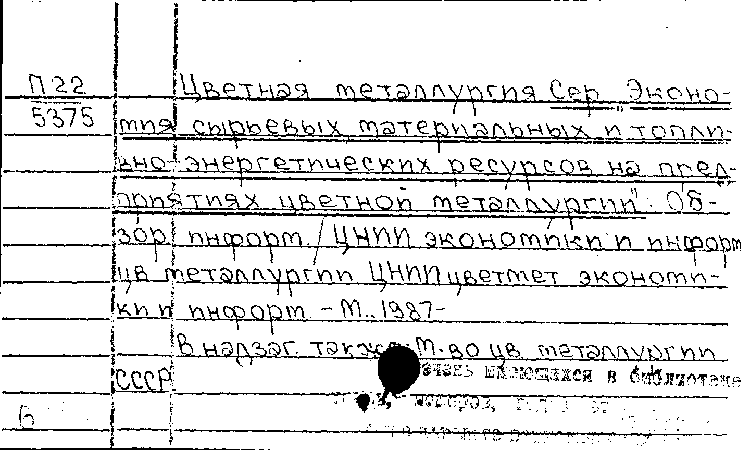 П22
5375
Цветная металлургия Сер „Эконо-
мия сырьевых материальных и топли-
вно-энергетических ресурсов на пред-
приятиях цветной металлургии": Об-
зор. информ. / ЦНИИ экономики и информ
цв металлургии ЦНИИцветмет экономи-
ки и информ - М., 1987-
В надзаг. также М-во цв металлургии
СССР
имеющихся в библиотеке
Б